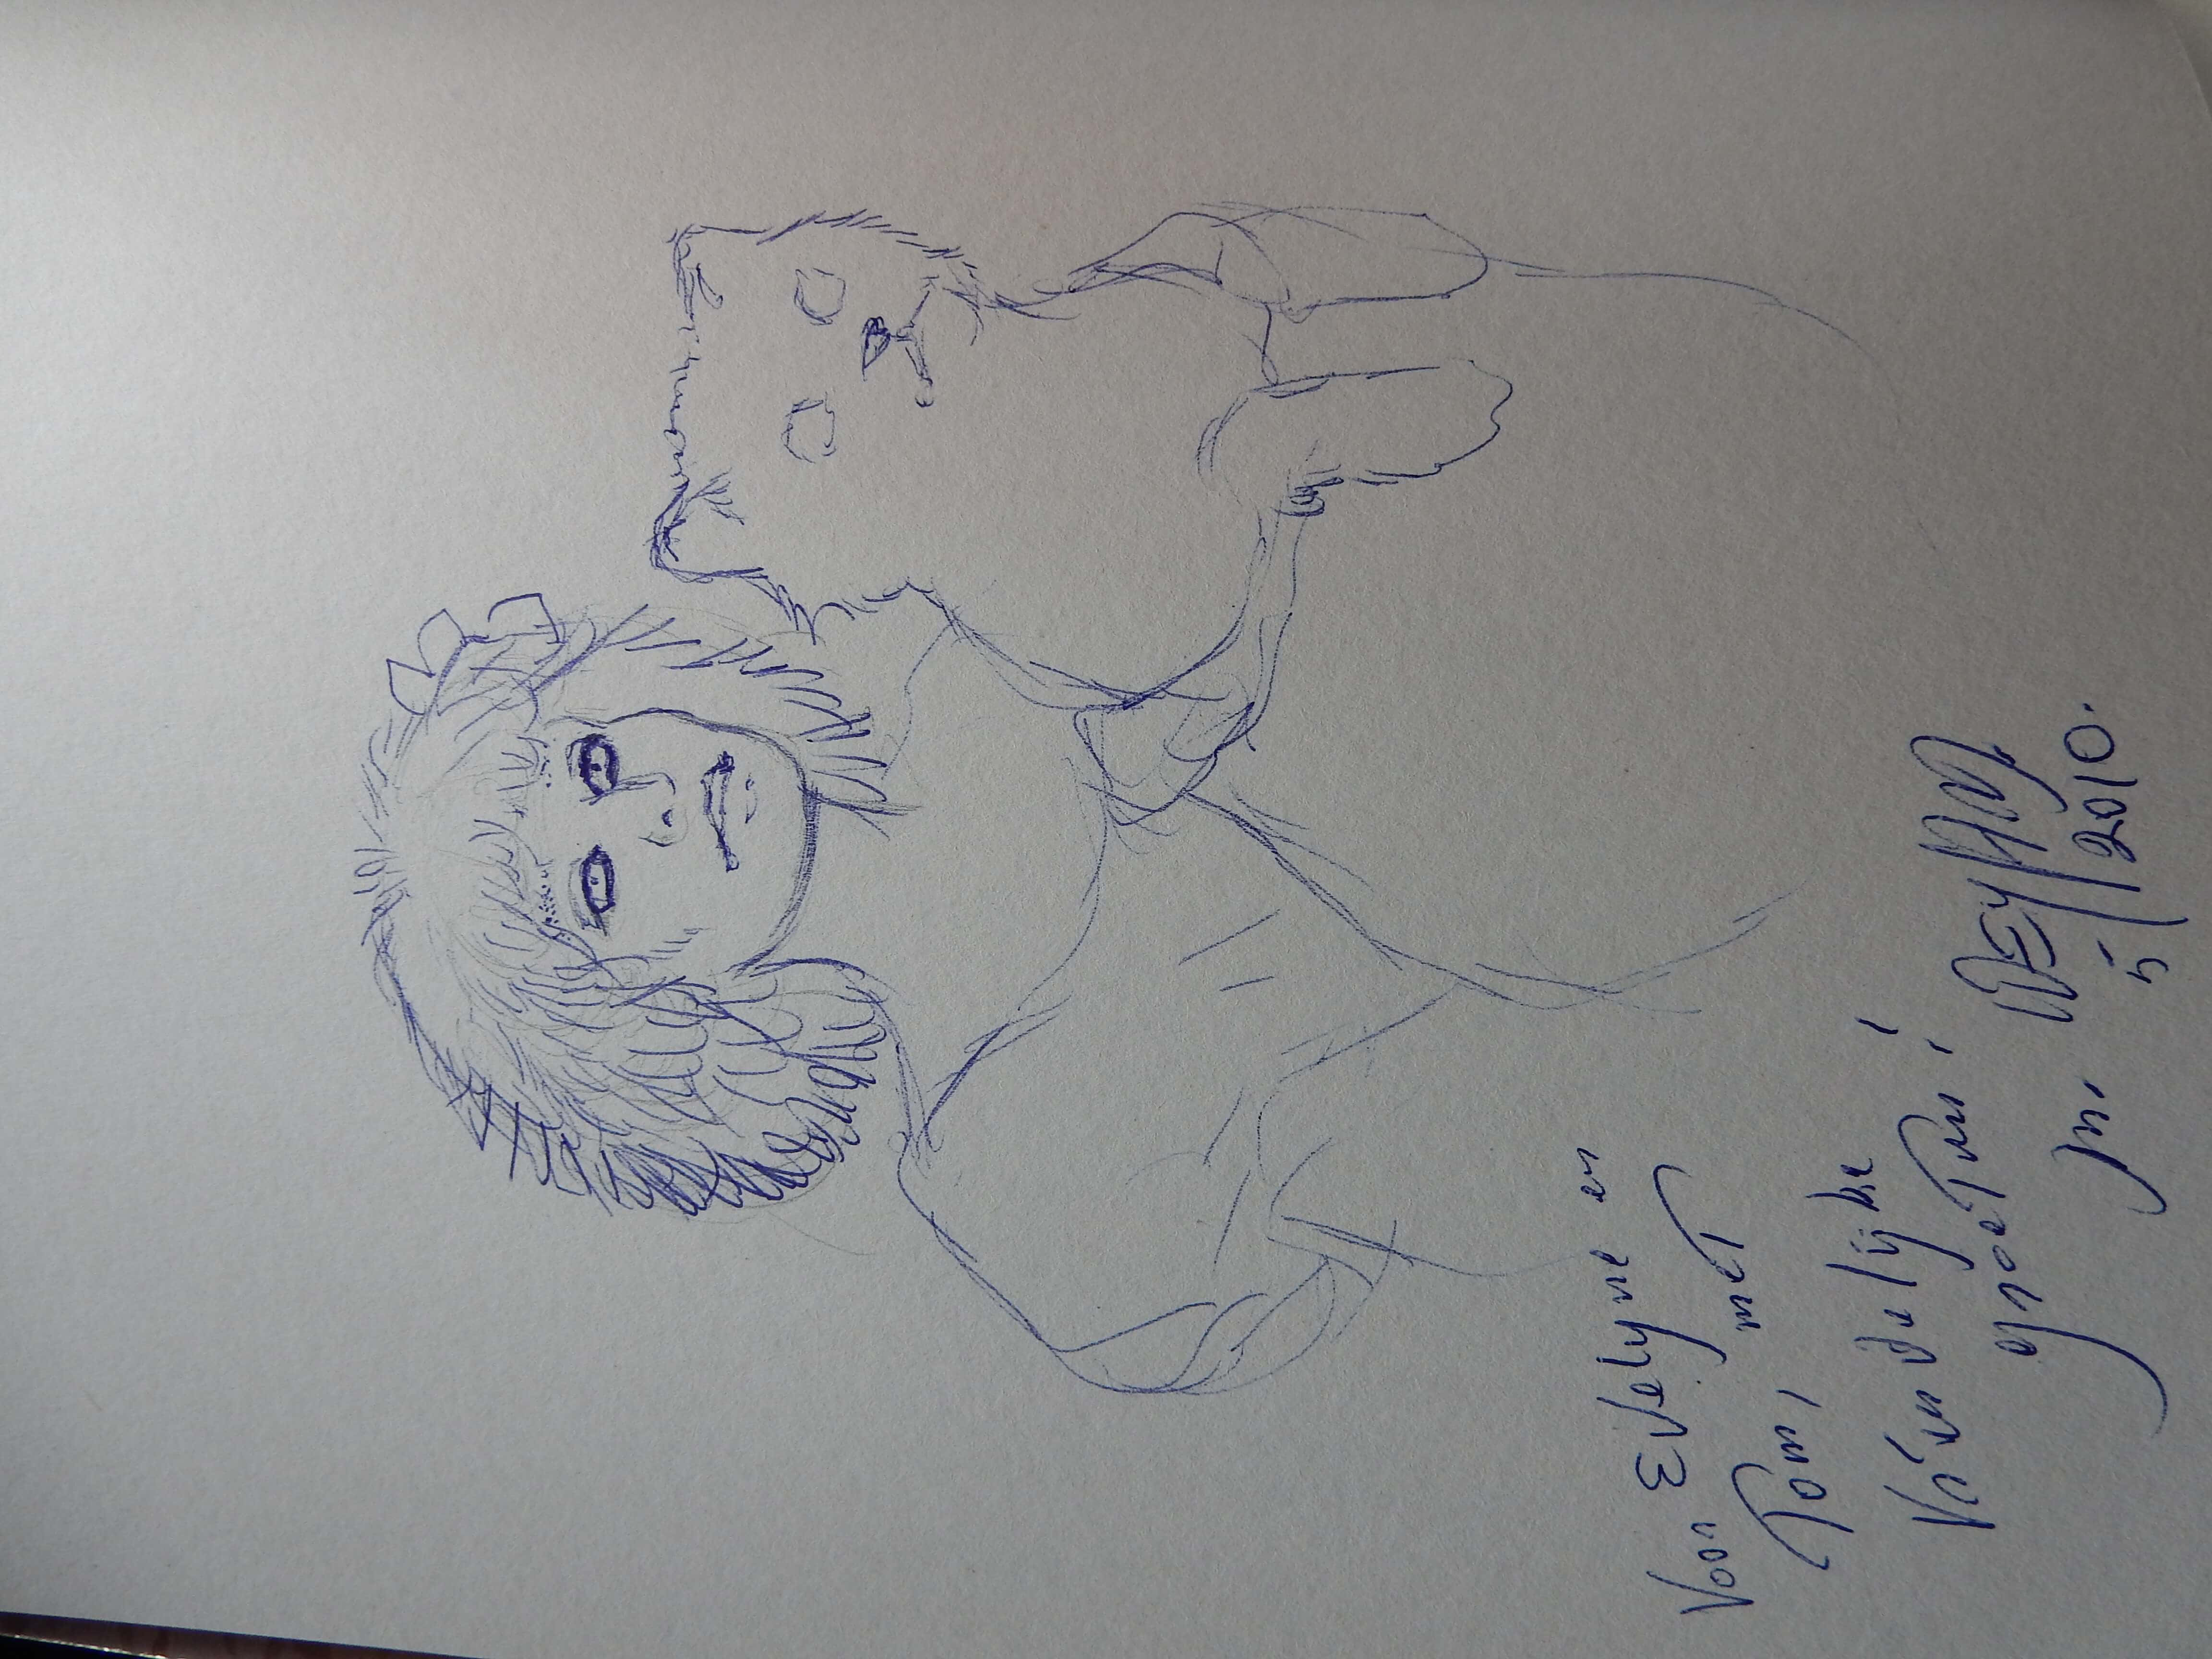 Voor Evelyne en
Tom, met
Vriendelijke
groeten!
5/2010.